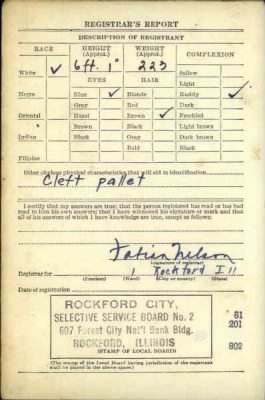 REGISTRAR'S REPORT
DESCRIPTION OF REGISTRANT
RACE HEIGHT (Approx.) WEIGHT (Approx.) COMPLEXION
White ✓ 6ft. 1" 223 Sallow
Light
EYES HAIR Ruddy ✓
Negro Blue ✓ Blonde Dark
Gray Red Freckled
Oriental Hazel Brown ✓ Light brown
Brown Black Dark brown
Indian Black Gray Black
Bald
Filipino
Other obvious physical characteristics that will aid in identification
Cleft pallet
I certify that my answers are true; that the person registered has read or has had
read to him his own answers; that I have witnessed his signature or mark and that
all of his answers of which I have knowledge are true, except as follows:
Nelson
(Signature of registrar)
Registrar for 1 Rockford Ill
(Precinct) (Ward) (City or county) (State)
Date of registration
ROCKFORD CITY,
SELECTIVE SERVICE BOARD No. 2 61
607 Forest City Nat'l Bank Bldg. 201
ROCKFORD, ILLINOIS 802
(STAMP OF LOCAL BOARD)
(The stamp of the Local Board having jurisdiction of the registrant
shall be placed in the above space.)